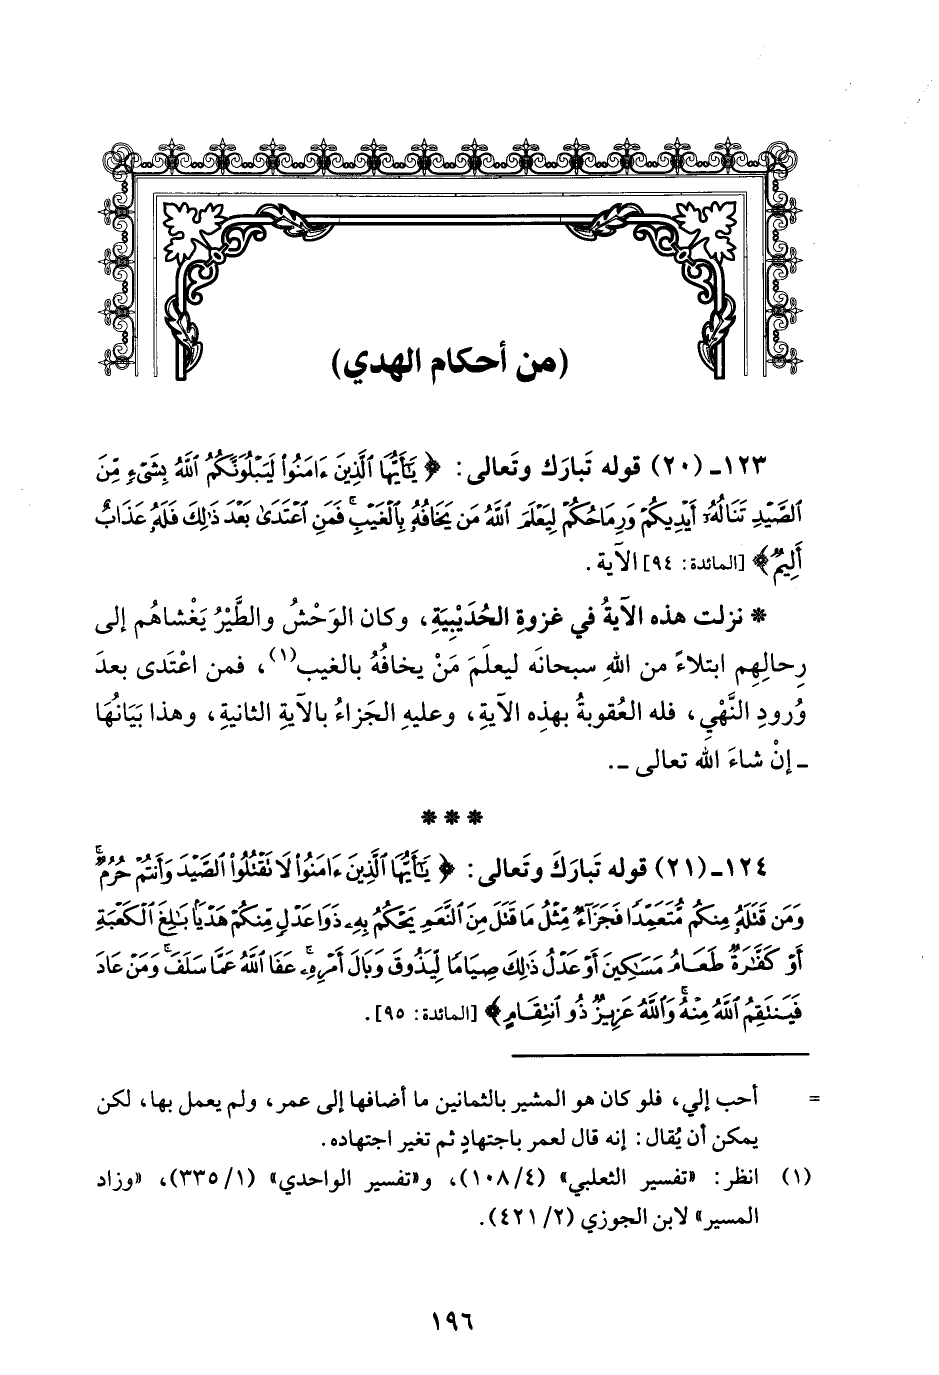 (من أحكام الهدي)
١٢٣ـ (٢٠) قوله تبارك وتعالى: ﴿يَٰٓأَيُّهَا ٱلَّذِينَ ءَامَنُوا۟ لَيَبْلُوَنَّكُمُ ٱللَّهُ بِشَىْءٍ مِّنَ
ٱلصَّيْدِ تَنَالُهُۥٓ أَيْدِيكُمْ وَرِمَاحُكُمْ لِيَعْلَمَ ٱللَّهُ مَن يَخَافُهُۥ بِٱلْغَيْبِ ۚ فَمَنِ ٱعْتَدَىٰ بَعْدَ ذَٰلِكَ فَلَهُۥ عَذَابٌ
أَلِيمٌ﴾ [المائدة: ٩٤] الآية.
* نزلت هذه الآيةُ في غزوةِ الحُدَيْبِيَةِ، وكان الوَحْشُ والطَّيْرُ يَغْشاهُم إلى
رِحالِهِم ابتلاءً من اللهِ سبحانَه ليعلَمَ مَنْ يخافُهُ بالغيب(١)، فمن اعْتَدى بعدَ
وُرودِ النَّهْيِ، فله العُقوبةُ بهذِه الآيةِ، وعليهِ الجَزاءُ بالآيةِ الثانيةِ، وهذا بَيَانُهَا
ـ إنْ شاءَ الله تعالى ـ.
* * *
١٢٤ـ (٢١) قوله تَبارَكَ وتَعالى: ﴿يَٰٓأَيُّهَا ٱلَّذِينَ ءَامَنُوا۟ لَا تَقْتُلُوا۟ ٱلصَّيْدَ وَأَنتُمْ حُرُمٌ ۚ
وَمَن قَتَلَهُۥ مِنكُم مُّتَعَمِّدًا فَجَزَآءٌ مِّثْلُ مَا قَتَلَ مِنَ ٱلنَّعَمِ يَحْكُمُ بِهِۦ ذَوَا عَدْلٍ مِّنكُمْ هَدْيًۢا بَٰلِغَ ٱلْكَعْبَةِ
أَوْ كَفَّٰرَةٌ طَعَامُ مَسَٰكِينَ أَوْ عَدْلُ ذَٰلِكَ صِيَامًا لِّيَذُوقَ وَبَالَ أَمْرِهِۦ ۗ عَفَا ٱللَّهُ عَمَّا سَلَفَ ۚ وَمَنْ عَادَ
فَيَنتَقِمُ ٱللَّهُ مِنْهُ ۗ وَٱللَّهُ عَزِيزٌ ذُو ٱنتِقَامٍ﴾ [المائدة: ٩٥].
= أحب إلي، فلو كان هو المشير بالثمانين ما أضافها إلى عمر، ولم يعمل بها، لكن
يمكن أن يُقال: إنه قال لعمر باجتهادٍ ثم تغير اجتهاده.
(١) انظر: «تفسير الثعلبي» (٤/ ١٠٨)، و«تفسير الواحدي» (١/ ٣٣٥)، «وزاد
المسير» لابن الجوزي (٢/ ٤٢١).
١٩٦